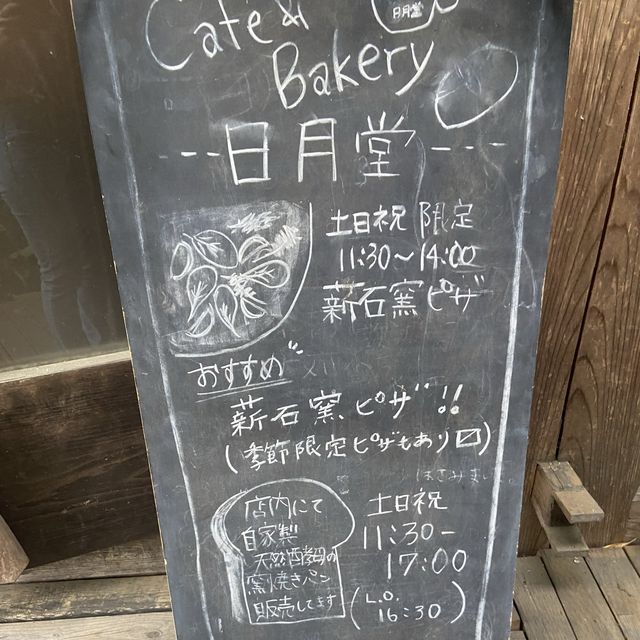 Cafe &
日月堂
Bakery
日月堂
土日祝 限定
11:30〜14:00
薪石窯ピザ
おすすめ
薪石窯ピザ!!
(季節限定ピザもあり〼)
店内にて
自家製
天然酵母の
窯焼きパン
販売してます
土日祝
11:30-
17:00
(L.O.
16:30)